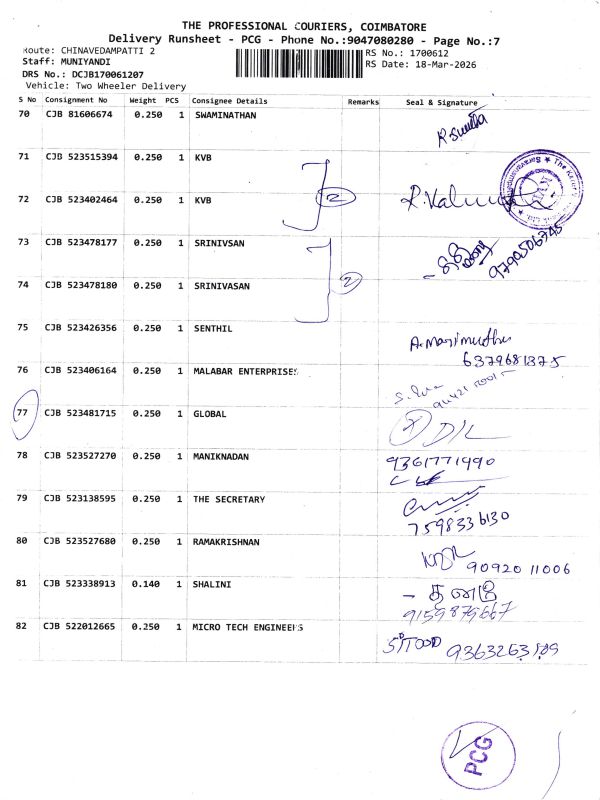 THE PROFESSIONAL COURIERS, COIMBATORE
Delivery Runsheet - PCG - Phone No.:9047080280 - Page No.:7
Route: CHINAVEDAMPATTI 2
RS No.: 1700612
Staff: MUNIYANDI
RS Date: 18-Mar-2026
DRS No.: DCJB170061207
Vehicle: Two Wheeler Delivery
S No Consignment No Weight PCS Consignee Details Remarks Seal & Signature
70 CJB 81606674 0.250 1 SWAMINATHAN
71 CJB 523515394 0.250 1 KVB
72 CJB 523402464 0.250 1 KVB 2
73 CJB 523478177 0.250 1 SRINIVSAN
74 CJB 523478180 0.250 1 SRINIVASAN 2
75 CJB 523426356 0.250 1 SENTHIL A. Manimuthu
6379681375
76 CJB 523406164 0.250 1 MALABAR ENTERPRISES
77 CJB 523481715 0.250 1 GLOBAL D/L
78 CJB 523527270 0.250 1 MANIKNADAN 9361771990
79 CJB 523138595 0.250 1 THE SECRETARY
7598336130
80 CJB 523527680 0.250 1 RAMAKRISHNAN 90920 11006
81 CJB 523338913 0.140 1 SHALINI
9159879667
82 CJB 522012665 0.250 1 MICRO TECH ENGINEERS
PCG